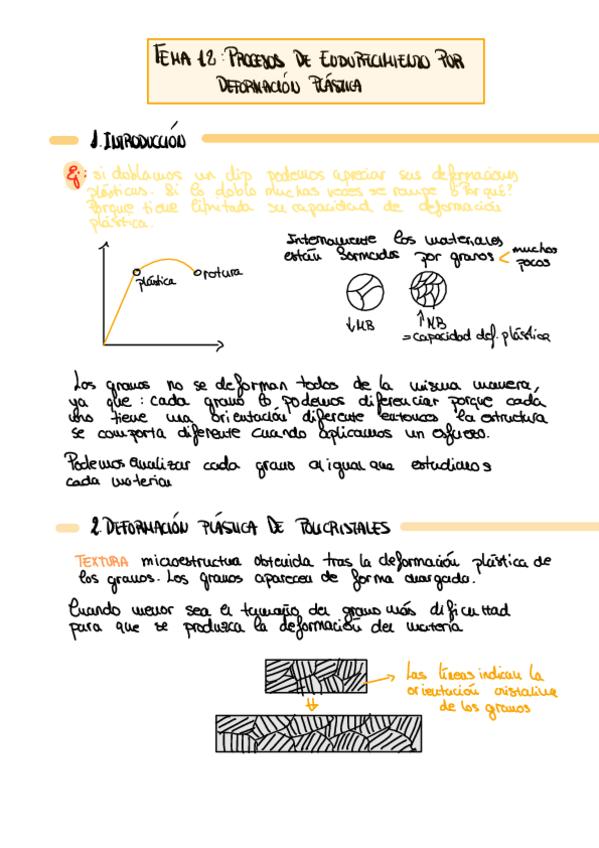 TEMA 12: PROCESOS DE ENDURECIMIENTO POR
DEFORMACIÓN PLÁSTICA
1. INTRODUCCIÓN
Ej: si doblamos un clip podemos apreciar sus deformaciones
plásticas. Si lo doblo muchas veces se rompe ¿Por qué?
Porque tiene limitada su capacidad de deformación
plástica.
plástica
rotura
Internamente los materiales
están formados por granos < muchos
pocos
↓NB
↑NB
= capacidad def. plástica
Los granos no se deforman todos de la misma manera,
ya que: cada grano lo podemos diferenciar porque cada
uno tiene una orientación diferente entonces la estructura
se comporta diferente cuando aplicamos un esfuerzo.
Podemos analizar cada grano al igual que estudiamos
cada material
2. DEFORMACIÓN PLÁSTICA DE POLICRISTALES
TEXTURA microestructura obtenida tras la deformación plástica de
los granos. Los granos aparecen de forma alargada.
Cuando menor sea el tamaño del grano más dificultad
para que se produzca la deformación del material
Las líneas indican la
orientación cristalina
de los granos